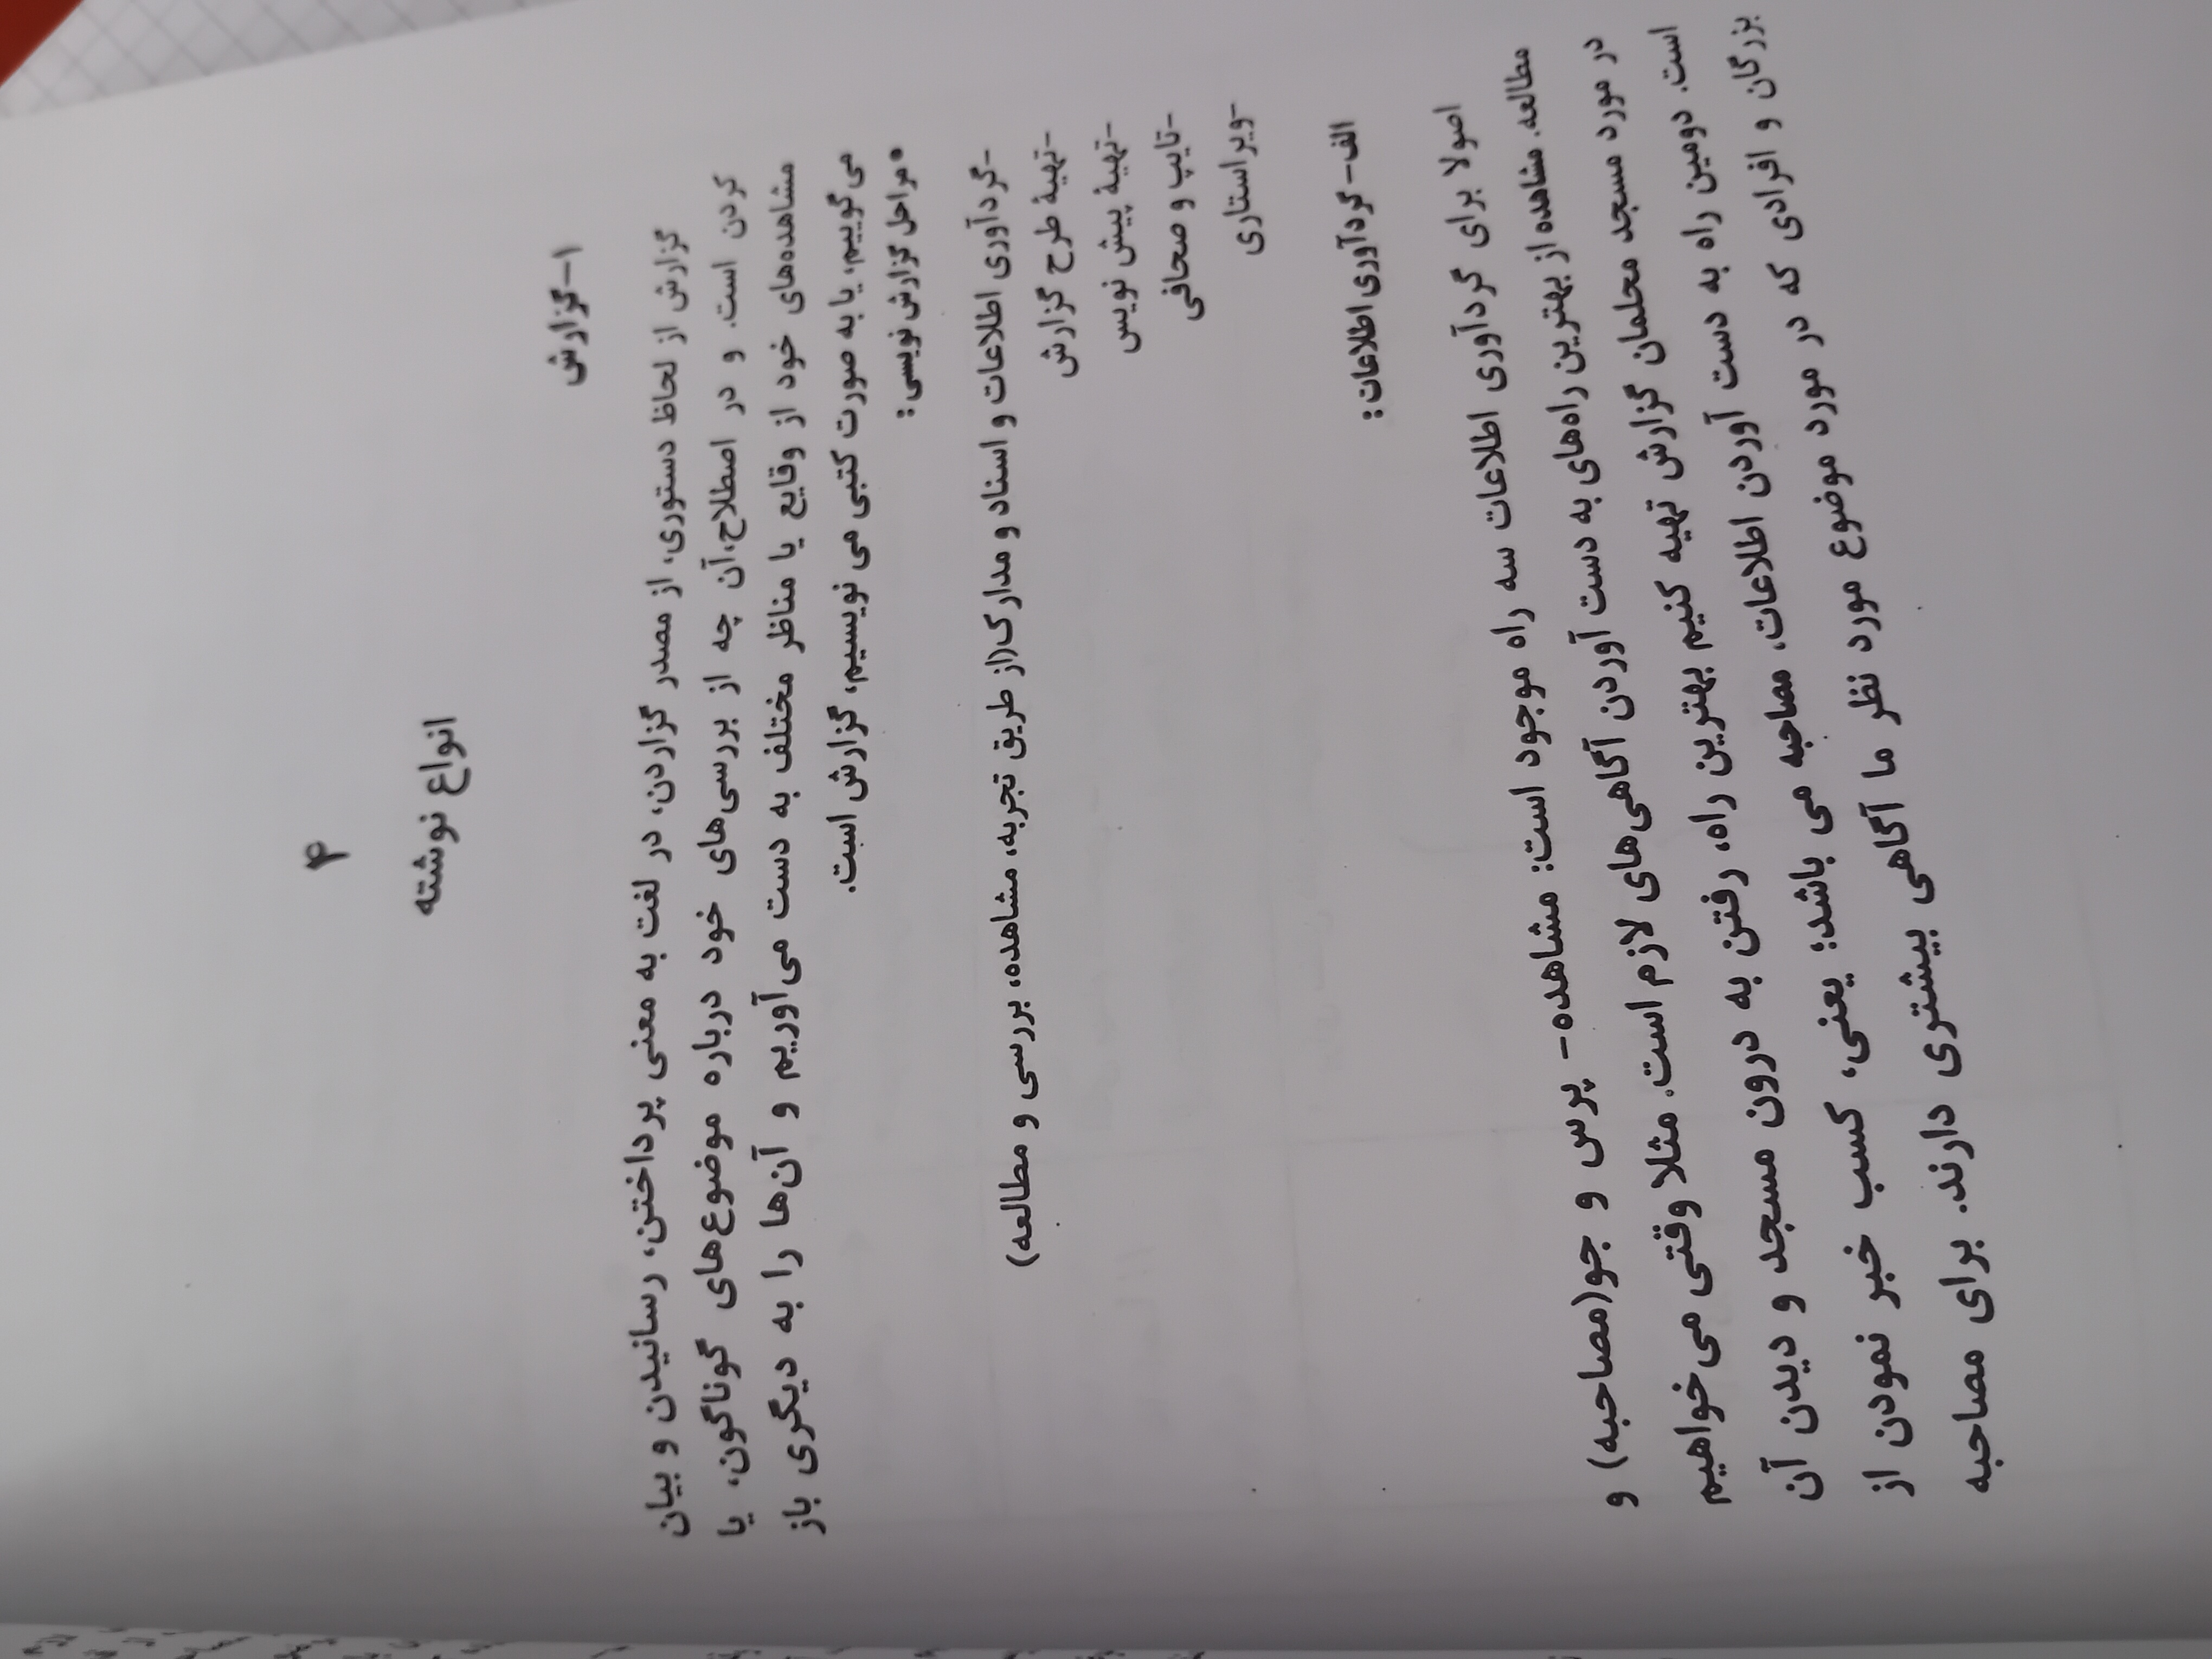 ۴
انواع نوشته
۱-گزارش
گزارش از لحاظ دستوری، از مصدر گزاردن، در لغت به معنی پرداختن، رسانیدن و بیان
کردن است. و در اصطلاح،آن چه از بررسی‌های خود درباره موضوع‌های گوناگون، یا
مشاهده‌های خود از وقایع یا مناظر مختلف به دست می‌آوریم و آن‌ها را به دیگری باز
می‌گوییم، یا به صورت کتبی می نویسیم، گزارش است.
• مراحل گزارش نویسی :
-گردآوری اطلاعات و اسناد و مدارک(از طریق تجربه، مشاهده، بررسی و مطالعه)
-تهیهٔ طرح گزارش
-تهیهٔ پیش نویس
-تایپ و صحافی
-ویراستاری
الف- گردآوری اطلاعات :
اصولا برای گردآوری اطلاعات سه راه موجود است: مشاهده- پرس و جو(مصاحبه) و
مطالعه. مشاهده از بهترین راه‌های به دست آوردن آگاهی‌های لازم است. مثلا وقتی می‌خواهیم
در مورد مسجد محلمان گزارش تهیه کنیم بهترین راه، رفتن به درون مسجد و دیدن آن
است. دومین راه به دست آوردن اطلاعات، مصاحبه می باشد؛ یعنی، کسب خبر نمودن از
بزرگان و افرادی که در مورد موضوع مورد نظر ما آگاهی بیشتری دارند. برای مصاحبه